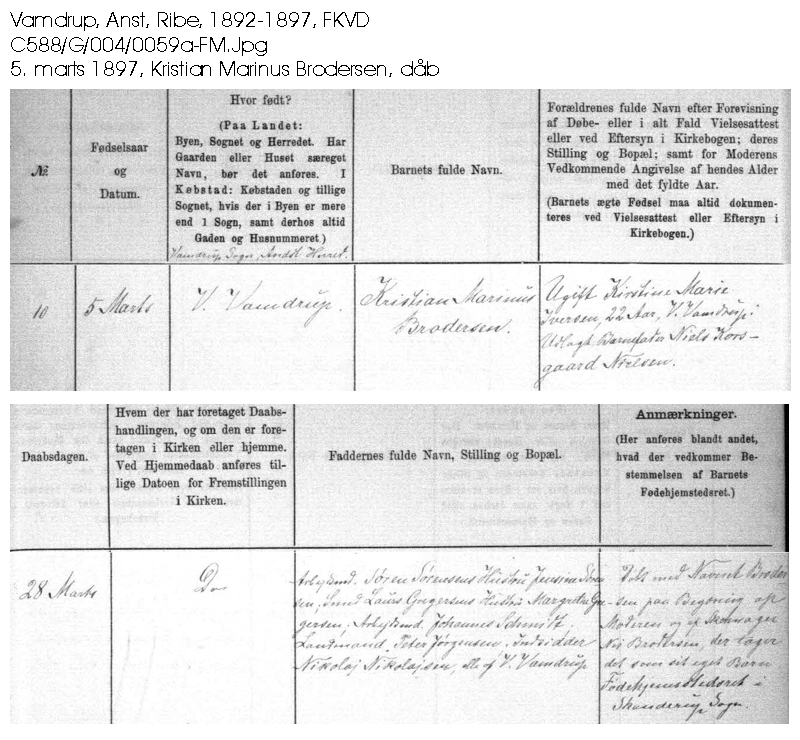 Vamdrup, Anst, Ribe, 1892-1897, FKVD
C588/G/004/0059a-FM.Jpg
5. marts 1897, Kristian Marinus Brodersen, dåb
№
Fødselsaar
og
Datum.
Hvor født?
(Paa Landet:
Byen, Sognet og Herredet. Har
Gaarden eller Huset særeget
Navn, bør det anføres. I
Købstad: Købstaden og tillige
Sognet, hvis der i Byen er mere
end 1 Sogn, samt derhos altid
Gaden og Husnummeret.)
Vamdrup Sogn, Andst Herret.
Barnets fulde Navn.
Forældrenes fulde Navn efter Forevisning
af Døbe- eller i alt Fald Vielsesattest
eller ved Eftersyn i Kirkebogen; deres
Stilling og Bopæl; samt for Moderens
Vedkommende Angivelse af hendes Alder
med det fyldte Aar.
(Barnets ægte Fødsel maa altid dokumen-
teres ved Vielsesattest eller Eftersyn i
Kirkebogen.)
10
5 Marts
V. Vamdrup.
Kristian Marinus
Brodersen.
Ugift Kirstine Marie
Iversen, 22 Aar, V. Vamdrup.
Udlagt Barnefader Niels Kors-
gaard Nielsen.
Daabsdagen.
Hvem der har foretaget Daabs-
handlingen, og om den er fore-
tagen i Kirken eller hjemme.
Ved Hjemmedaab anføres til-
lige Datoen for Fremstillingen
i Kirken.
Faddernes fulde Navn, Stilling og Bopæl.
Anmærkninger.
(Her anføres blandt andet,
hvad der vedkommer Be-
stemmelsen af Barnets
Fødehjemstedsret.)
28 Marts
Do
Arbejdsmd. Søren Sørensens Hustru Jensine Søren-
sen, Smed Laurs Gregersens Hustru Margrethe Gre-
gersen, Arbejdsmd. Johannes Schmidt,
Landmand Peter Jørgensen, Indsidder
Nikolaj Nikolajsen, alle af V. Vamdrup
Døbt med Navnet Broder-
sen paa Begæring af
Moderen og af
Nis Brodersen, der tager
det som sit eget Barn
Fødehjemstedsret i
Skanderup Sogn.